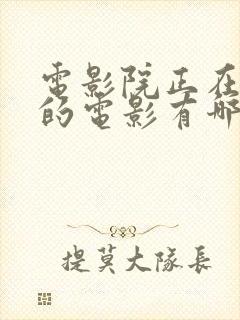 電影院正在
的電影有哪
提莫大隊長